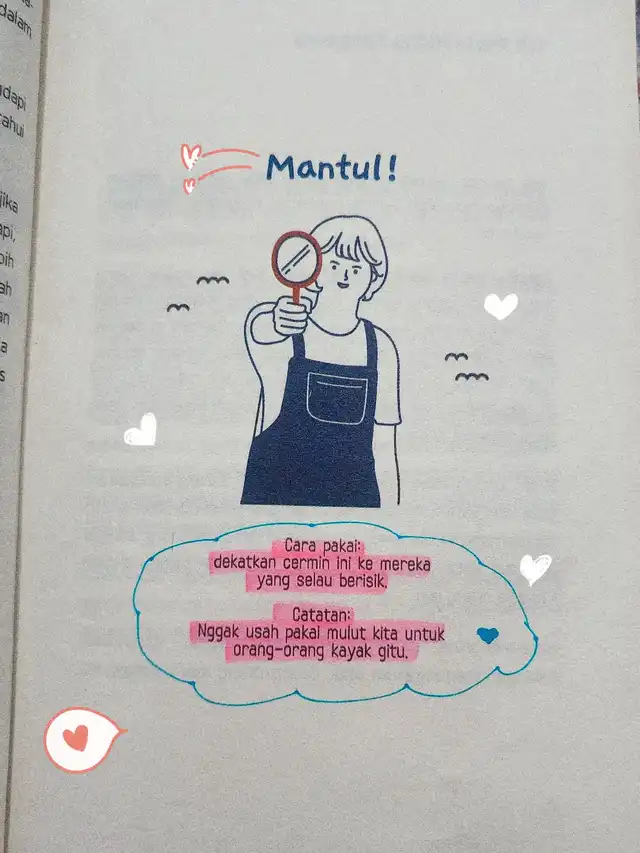 dalam
Mantul!
Cara pakai:
dekatkan cermin ini ke mereka
yang selau berisik.
Catatan:
Nggak usah pakai mulut kita untuk
orang-orang kayak gitu.